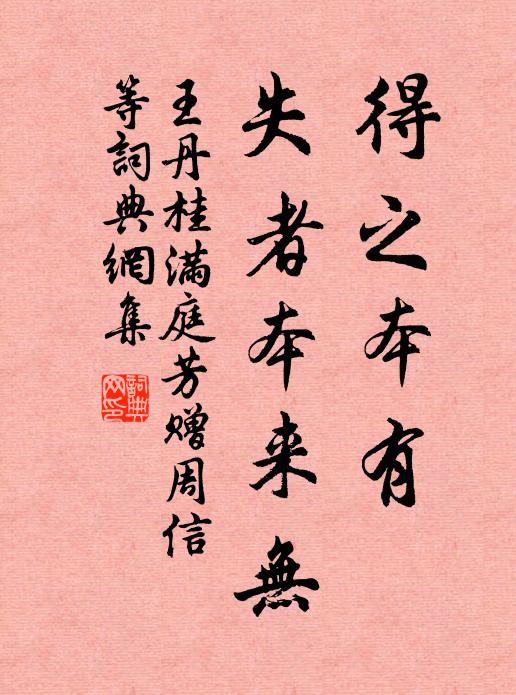 得之本有
失者本来無
王丹桂满庭芳赠周信
等詞典網集
詞典網印